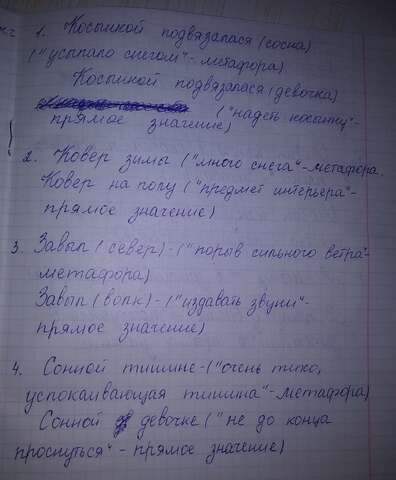 1. Косынкой подвязалася (сосна)
("усыпало снегом"- метафора)
Косынкой подвязалася (девочка)
("надеть косынку"-
прямое значение)
2. Ковер зимы ("много снега"- метафора.
Ковер на полу ("предмет интерьера"-
прямое значение)
3. Завыл (север) - ("порыв сильного ветра"-
метафора)
Завыл (волк) - ("издавать звуки"-
прямое значение)
4. Сонной тишине - ("очень тихо,
успокаивающая тишина"- метафора)
Сонной девочке ("не до конца
проснуться" - прямое значение)